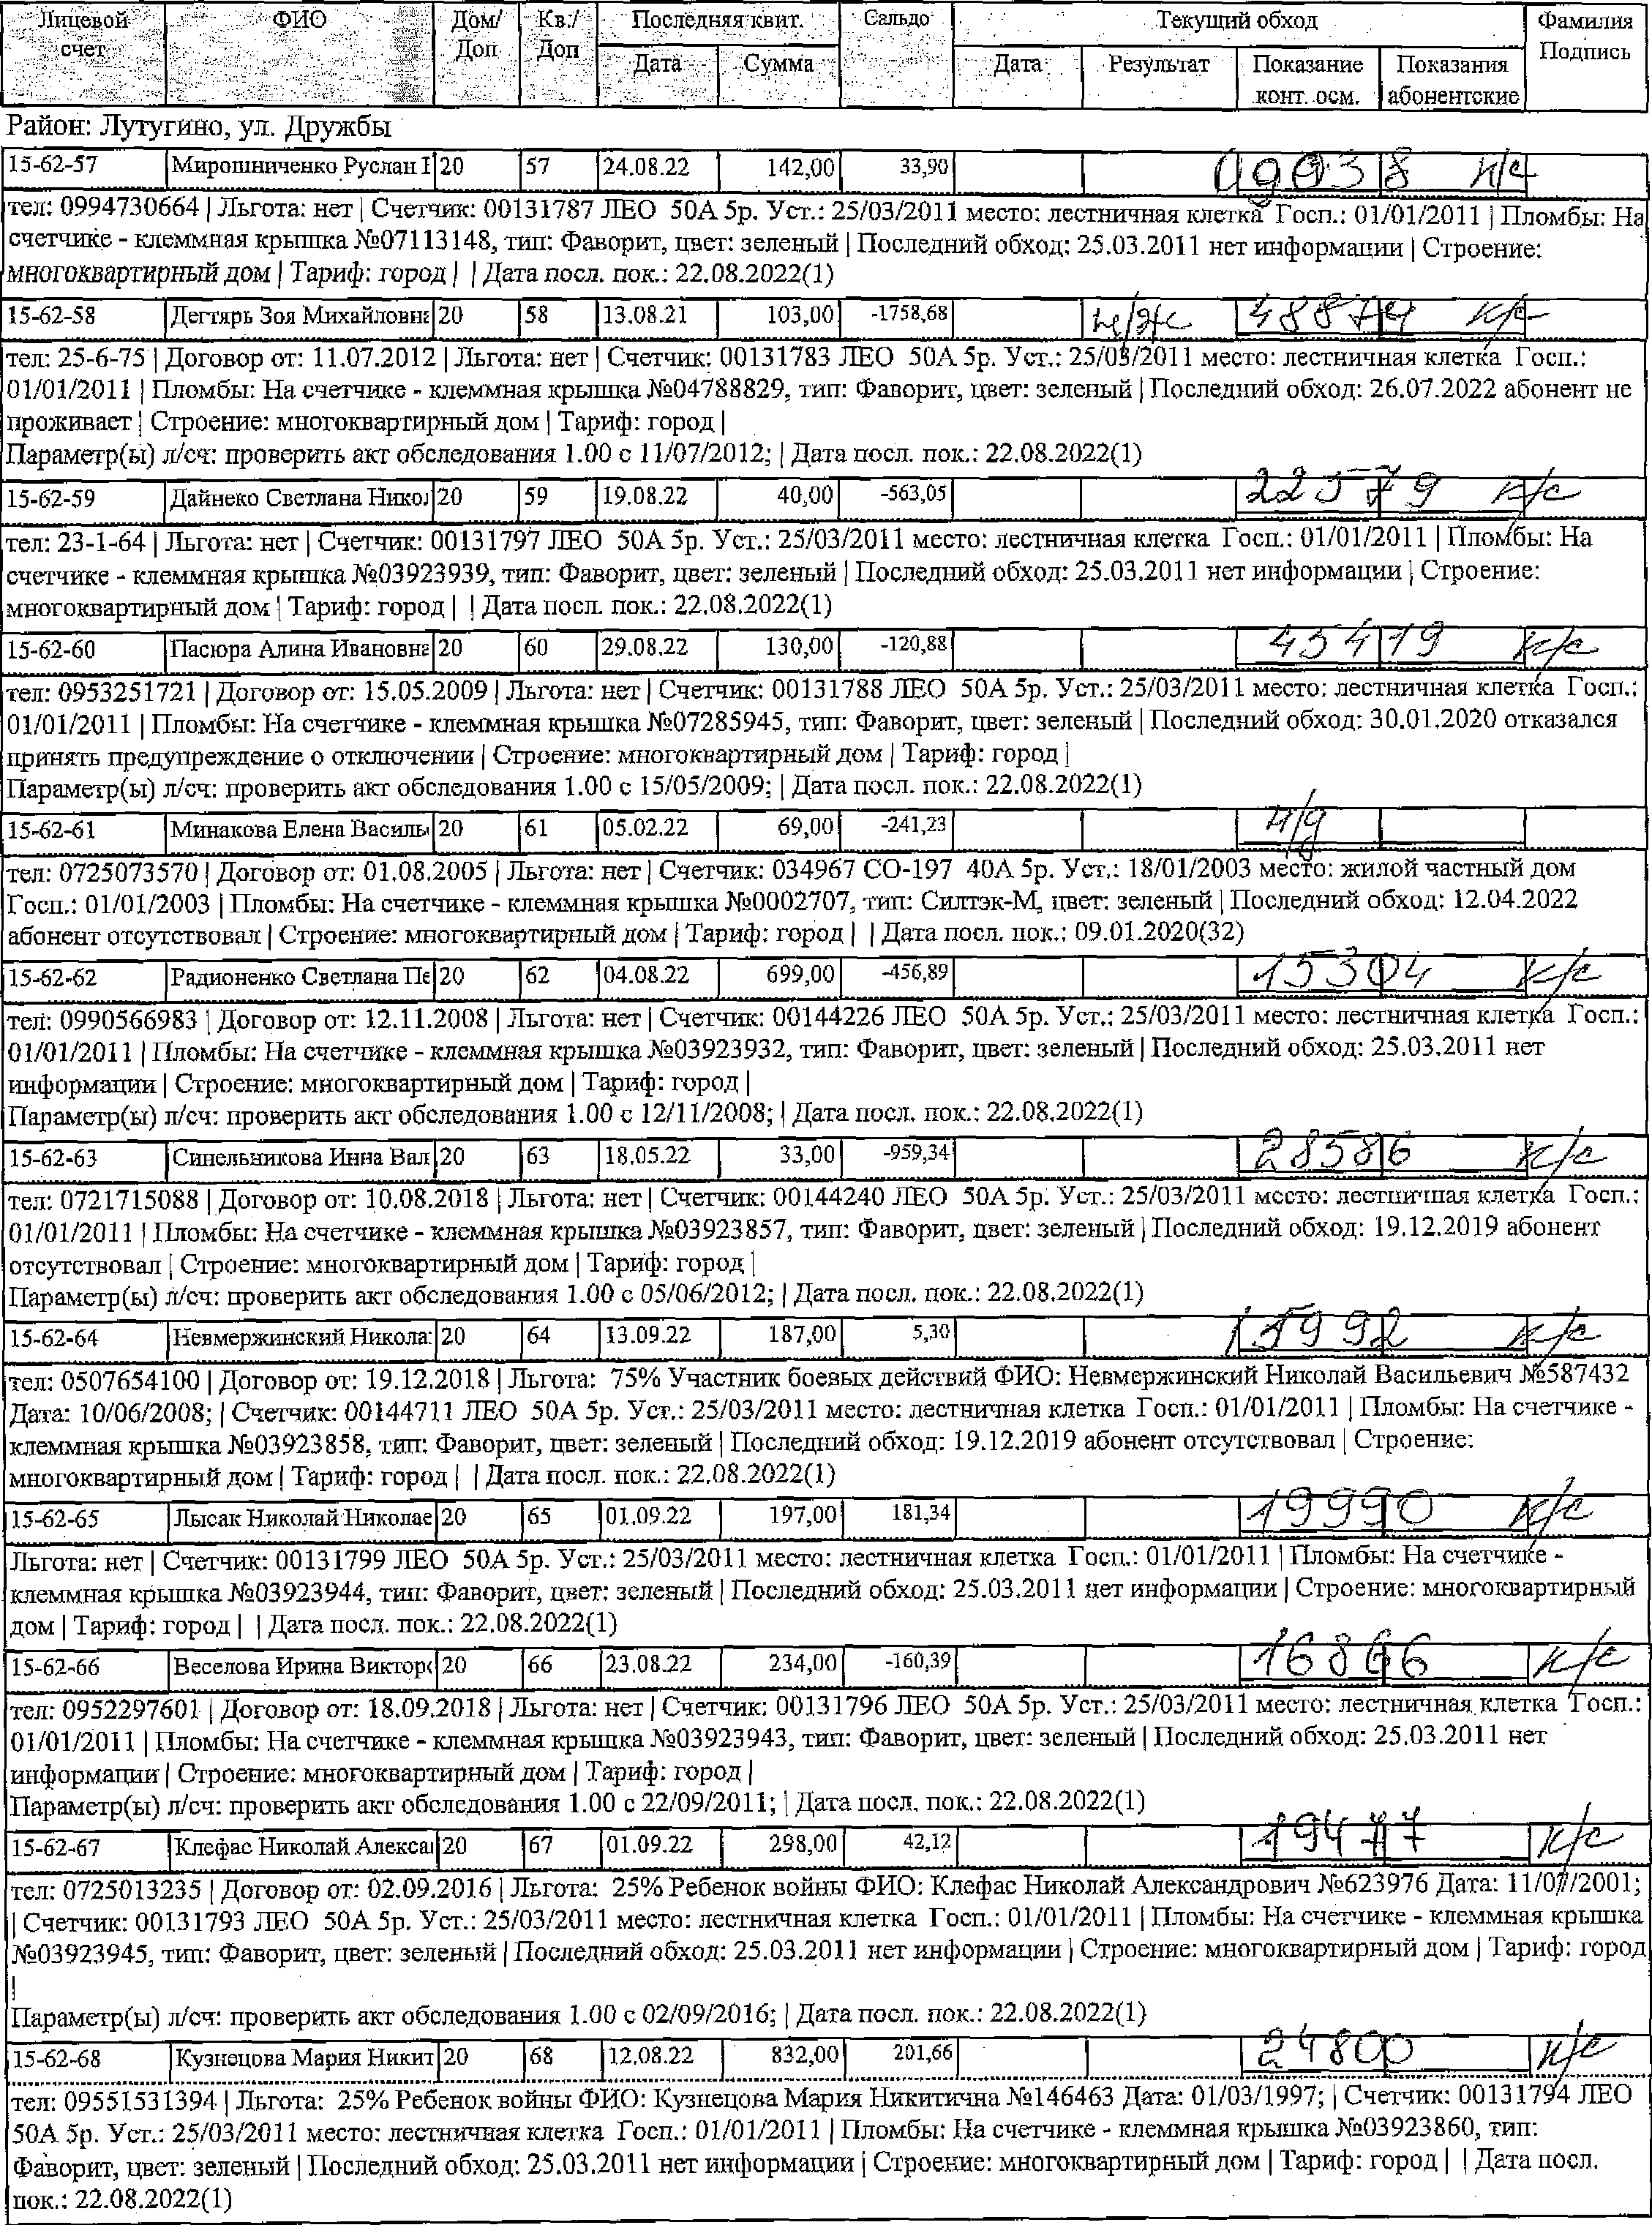 Лицевой счет | ФИО | Дом/ Доп | Кв./ Доп | Последняя квит. | Сальдо | Текущий обход | Фамилия Подпись
Дата | Сумма | Дата | Результат | Показание конт. осм. | Показания абонентские
Район: Лутугино, ул. Дружбы
15-62-57 | Мирошниченко Руслан | 20 | 57 | 24.08.22 | 142,00 | 33,90 | 09038 к/с
тел: 0994730664 | Льгота: нет | Счетчик: 00131787 ЛЕО 50А 5р. Уст.: 25/03/2011 место: лестничная клетка Госп.: 01/01/2011 | Пломбы: На
счетчике - клеммная крышка №07113148, тип: Фаворит, цвет: зеленый | Последний обход: 25.03.2011 нет информации | Строение:
многоквартирный дом | Тариф: город | | Дата посл. пок.: 22.08.2022(1)
15-62-58 | Дегтярь Зоя Михайловна | 20 | 58 | 13.08.21 | 103,00 | -1758,68 | н/ж | 48874 к/с
тел: 25-6-75 | Договор от: 11.07.2012 | Льгота: нет | Счетчик: 00131783 ЛЕО 50А 5р. Уст.: 25/03/2011 место: лестничная клетка Госп.:
01/01/2011 | Пломбы: На счетчике - клеммная крышка №04788829, тип: Фаворит, цвет: зеленый | Последний обход: 26.07.2022 абонент не
проживает | Строение: многоквартирный дом | Тариф: город |
Параметр(ы) л/сч: проверить акт обследования 1.00 с 11/07/2012; | Дата посл. пок.: 22.08.2022(1)
15-62-59 | Дайнеко Светлана Никол | 20 | 59 | 19.08.22 | 40,00 | -563,05 | 22579 к/с
тел: 23-1-64 | Льгота: нет | Счетчик: 00131797 ЛЕО 50А 5р. Уст.: 25/03/2011 место: лестничная клетка Госп.: 01/01/2011 | Пломбы: На
счетчике - клеммная крышка №03923939, тип: Фаворит, цвет: зеленый | Последний обход: 25.03.2011 нет информации | Строение:
многоквартирный дом | Тариф: город | | Дата посл. пок.: 22.08.2022(1)
15-62-60 | Пасюра Алина Ивановна | 20 | 60 | 29.08.22 | 130,00 | -120,88 | 45419 к/с
тел: 0953251721 | Договор от: 15.05.2009 | Льгота: нет | Счетчик: 00131788 ЛЕО 50А 5р. Уст.: 25/03/2011 место: лестничная клетка Госп.:
01/01/2011 | Пломбы: На счетчике - клеммная крышка №07285945, тип: Фаворит, цвет: зеленый | Последний обход: 30.01.2020 отказался
принять предупреждение о отключении | Строение: многоквартирный дом | Тариф: город |
Параметр(ы) л/сч: проверить акт обследования 1.00 с 15/05/2009; | Дата посл. пок.: 22.08.2022(1)
15-62-61 | Минакова Елена Василь | 20 | 61 | 05.02.22 | 69,00 | -241,23 | н/д
тел: 0725073570 | Договор от: 01.08.2005 | Льгота: нет | Счетчик: 034967 СО-197 40А 5р. Уст.: 18/01/2003 место: жилой частный дом
Госп.: 01/01/2003 | Пломбы: На счетчике - клеммная крышка №0002707, тип: Силтэк-М, цвет: зеленый | Последний обход: 12.04.2022
абонент отсутствовал | Строение: многоквартирный дом | Тариф: город | | Дата посл. пок.: 09.01.2020(32)
15-62-62 | Радионенко Светлана Пе | 20 | 62 | 04.08.22 | 699,00 | -456,89 | 15304 к/с
тел: 0990566983 | Договор от: 12.11.2008 | Льгота: нет | Счетчик: 00144226 ЛЕО 50А 5р. Уст.: 25/03/2011 место: лестничная клетка Госп.:
01/01/2011 | Пломбы: На счетчике - клеммная крышка №03923932, тип: Фаворит, цвет: зеленый | Последний обход: 25.03.2011 нет
информации | Строение: многоквартирный дом | Тариф: город |
Параметр(ы) л/сч: проверить акт обследования 1.00 с 12/11/2008; | Дата посл. пок.: 22.08.2022(1)
15-62-63 | Синельникова Инна Вал | 20 | 63 | 18.05.22 | 33,00 | -959,34 | 28586 к/с
тел: 0721715088 | Договор от: 10.08.2018 | Льгота: нет | Счетчик: 00144240 ЛЕО 50А 5р. Уст.: 25/03/2011 место: лестничная клетка Госп.:
01/01/2011 | Пломбы: На счетчике - клеммная крышка №03923857, тип: Фаворит, цвет: зеленый | Последний обход: 19.12.2019 абонент
отсутствовал | Строение: многоквартирный дом | Тариф: город |
Параметр(ы) л/сч: проверить акт обследования 1.00 с 05/06/2012; | Дата посл. пок.: 22.08.2022(1)
15-62-64 | Невмержинский Никола | 20 | 64 | 13.09.22 | 187,00 | 5,30 | 15992 к/с
тел: 0507654100 | Договор от: 19.12.2018 | Льгота: 75% Участник боевых действий ФИО: Невмержинский Николай Васильевич №587432
Дата: 10/06/2008; | Счетчик: 00144711 ЛЕО 50А 5р. Уст.: 25/03/2011 место: лестничная клетка Госп.: 01/01/2011 | Пломбы: На счетчике -
клеммная крышка №03923858, тип: Фаворит, цвет: зеленый | Последний обход: 19.12.2019 абонент отсутствовал | Строение:
многоквартирный дом | Тариф: город | | Дата посл. пок.: 22.08.2022(1)
15-62-65 | Лысак Николай Николае | 20 | 65 | 01.09.22 | 197,00 | 181,34 | 19990 к/с
Льгота: нет | Счетчик: 00131799 ЛЕО 50А 5р. Уст.: 25/03/2011 место: лестничная клетка Госп.: 01/01/2011 | Пломбы: На счетчике -
клеммная крышка №03923944, тип: Фаворит, цвет: зеленый | Последний обход: 25.03.2011 нет информации | Строение: многоквартирный
дом | Тариф: город | | Дата посл. пок.: 22.08.2022(1)
15-62-66 | Веселова Ирина Виктор | 20 | 66 | 23.08.22 | 234,00 | -160,39 | 16866 к/с
тел: 0952297601 | Договор от: 18.09.2018 | Льгота: нет | Счетчик: 00131796 ЛЕО 50А 5р. Уст.: 25/03/2011 место: лестничная клетка Госп.:
01/01/2011 | Пломбы: На счетчике - клеммная крышка №03923943, тип: Фаворит, цвет: зеленый | Последний обход: 25.03.2011 нет
информации | Строение: многоквартирный дом | Тариф: город |
Параметр(ы) л/сч: проверить акт обследования 1.00 с 22/09/2011; | Дата посл. пок.: 22.08.2022(1)
15-62-67 | Клефас Николай Алекса | 20 | 67 | 01.09.22 | 298,00 | 42,12 | 19477 к/с
тел: 0725013235 | Договор от: 02.09.2016 | Льгота: 25% Ребенок войны ФИО: Клефас Николай Александрович №623976 Дата: 11/07/2001;
| Счетчик: 00131793 ЛЕО 50А 5р. Уст.: 25/03/2011 место: лестничная клетка Госп.: 01/01/2011 | Пломбы: На счетчике - клеммная крышка
№03923945, тип: Фаворит, цвет: зеленый | Последний обход: 25.03.2011 нет информации | Строение: многоквартирный дом | Тариф: город
|
Параметр(ы) л/сч: проверить акт обследования 1.00 с 02/09/2016; | Дата посл. пок.: 22.08.2022(1)
15-62-68 | Кузнецова Мария Никит | 20 | 68 | 12.08.22 | 832,00 | 201,66 | 24800 к/с
тел: 09551531394 | Льгота: 25% Ребенок войны ФИО: Кузнецова Мария Никитична №146463 Дата: 01/03/1997; | Счетчик: 00131794 ЛЕО
50А 5р. Уст.: 25/03/2011 место: лестничная клетка Госп.: 01/01/2011 | Пломбы: На счетчике - клеммная крышка №03923860, тип:
Фаворит, цвет: зеленый | Последний обход: 25.03.2011 нет информации | Строение: многоквартирный дом | Тариф: город | | Дата посл.
пок.: 22.08.2022(1)